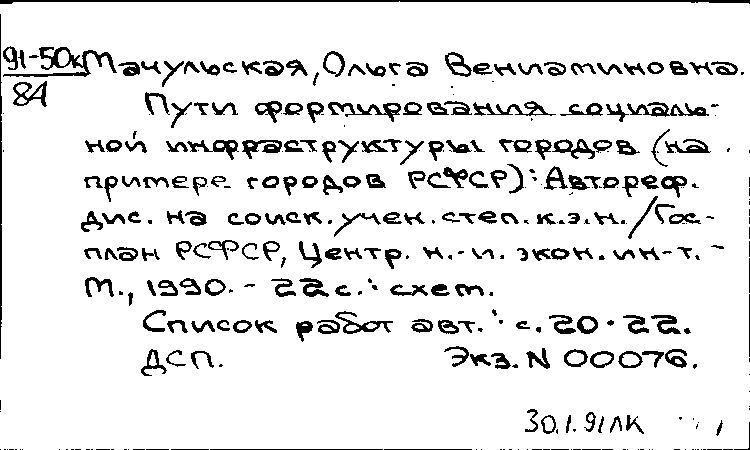 91-50к Мачульская, Ольга Вениаминовна.
84
Пути формирования социаль-
ной инфраструктуры городов (на
примере городов РСФСР): Автореф.
дис. на соиск. учен. степ. к.э.н. / Гос-
план РСФСР, Центр. н.-и. экон. ин-т. -
М., 1990. - 22 с.: схем.
Список работ авт.: с. 20-22.
ДСП. Экз. N 00076.
30.1.91 ЛК